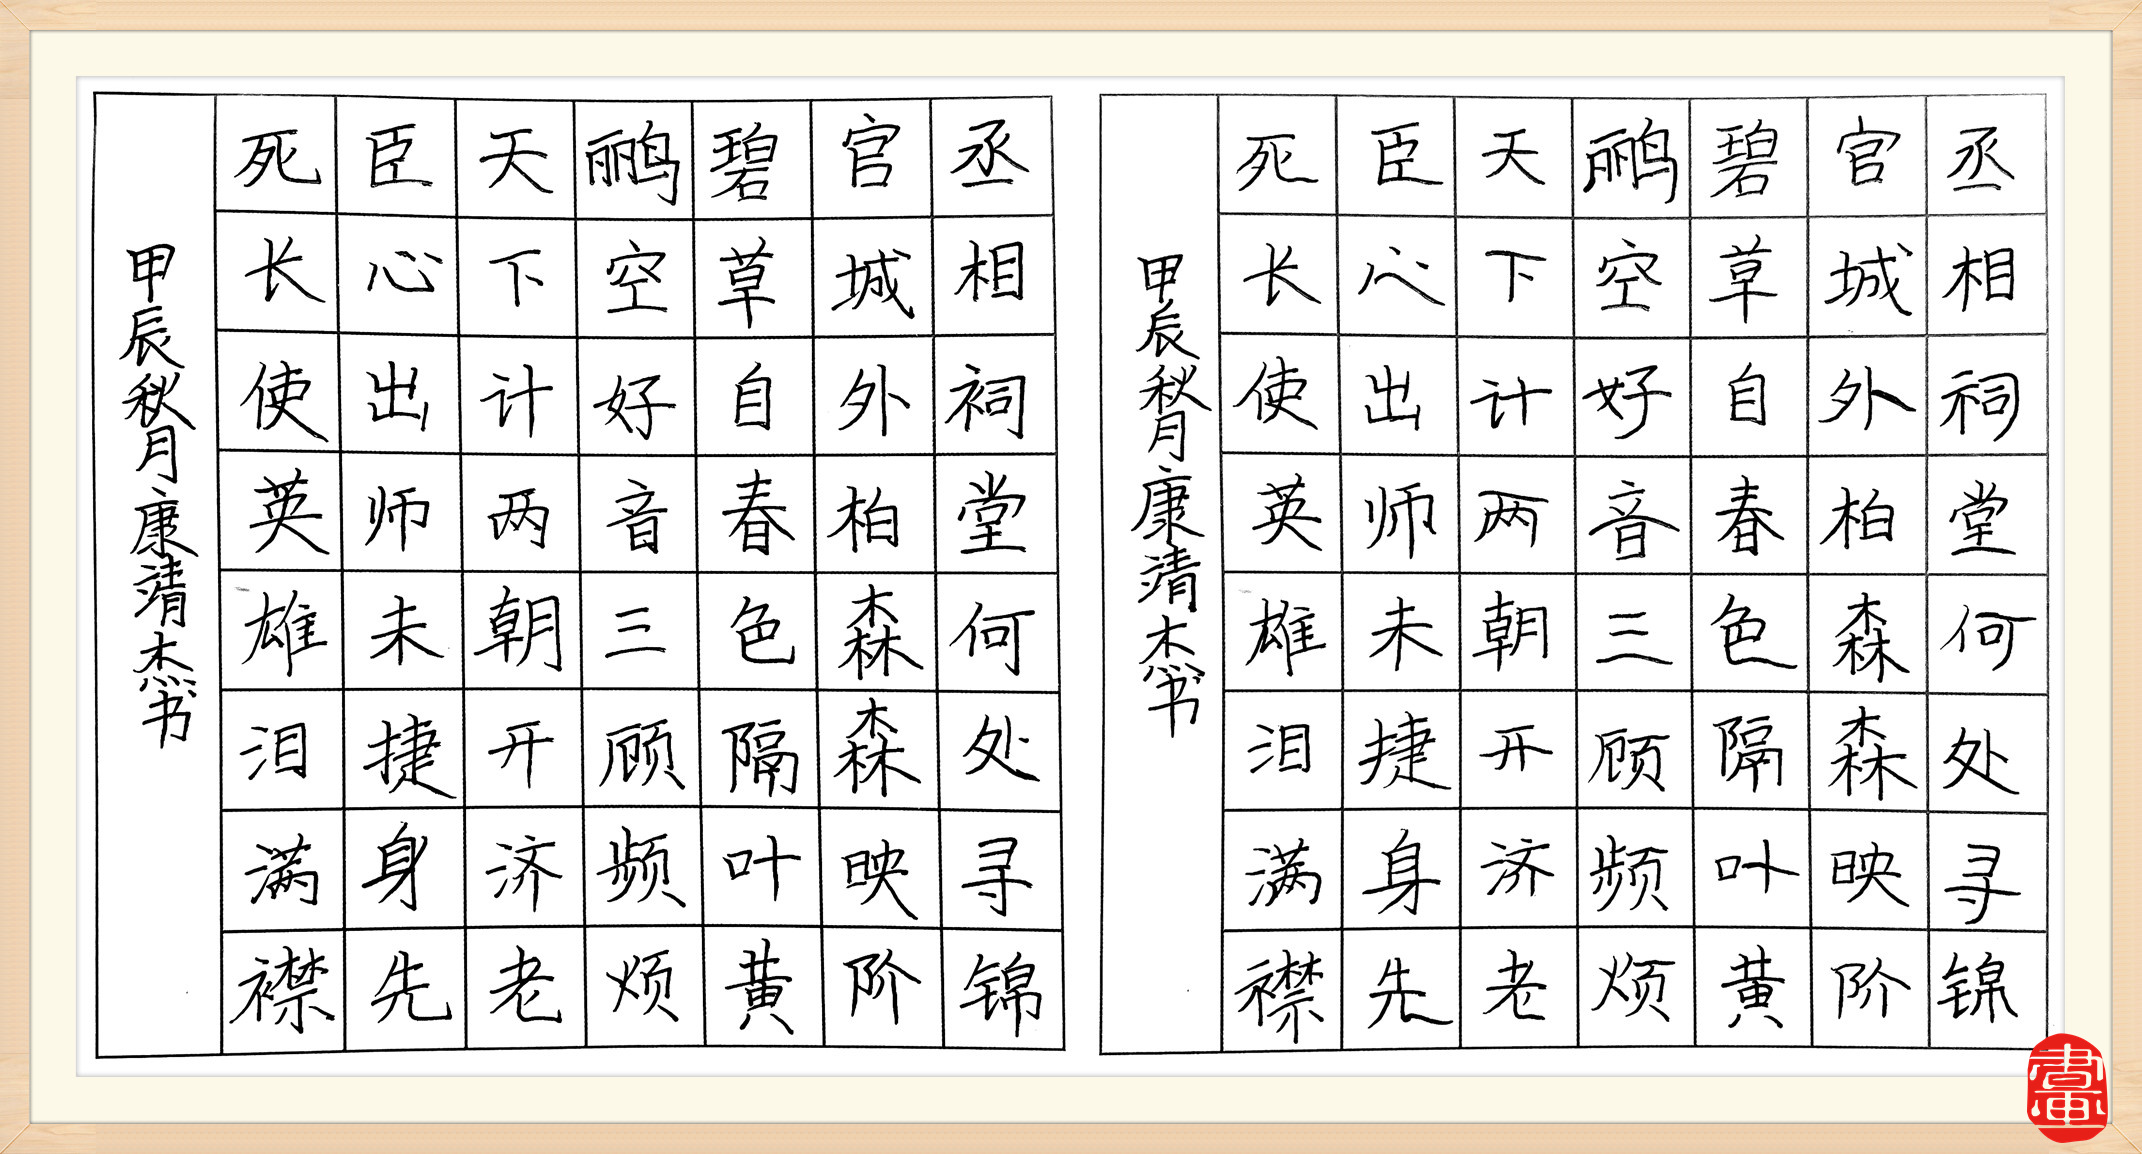 丞相祠堂何处寻锦
官城外柏森森映阶
碧草自春色隔叶黄
鹂空好音三顾频烦
天下计两朝开济老
臣心出师未捷身先
死长使英雄泪满襟
甲辰秋月康靖杰书
丞相祠堂何处寻锦
官城外柏森森映阶
碧草自春色隔叶黄
鹂空好音三顾频烦
天下计两朝开济老
臣心出师未捷身先
死长使英雄泪满襟
甲辰秋月康靖杰书